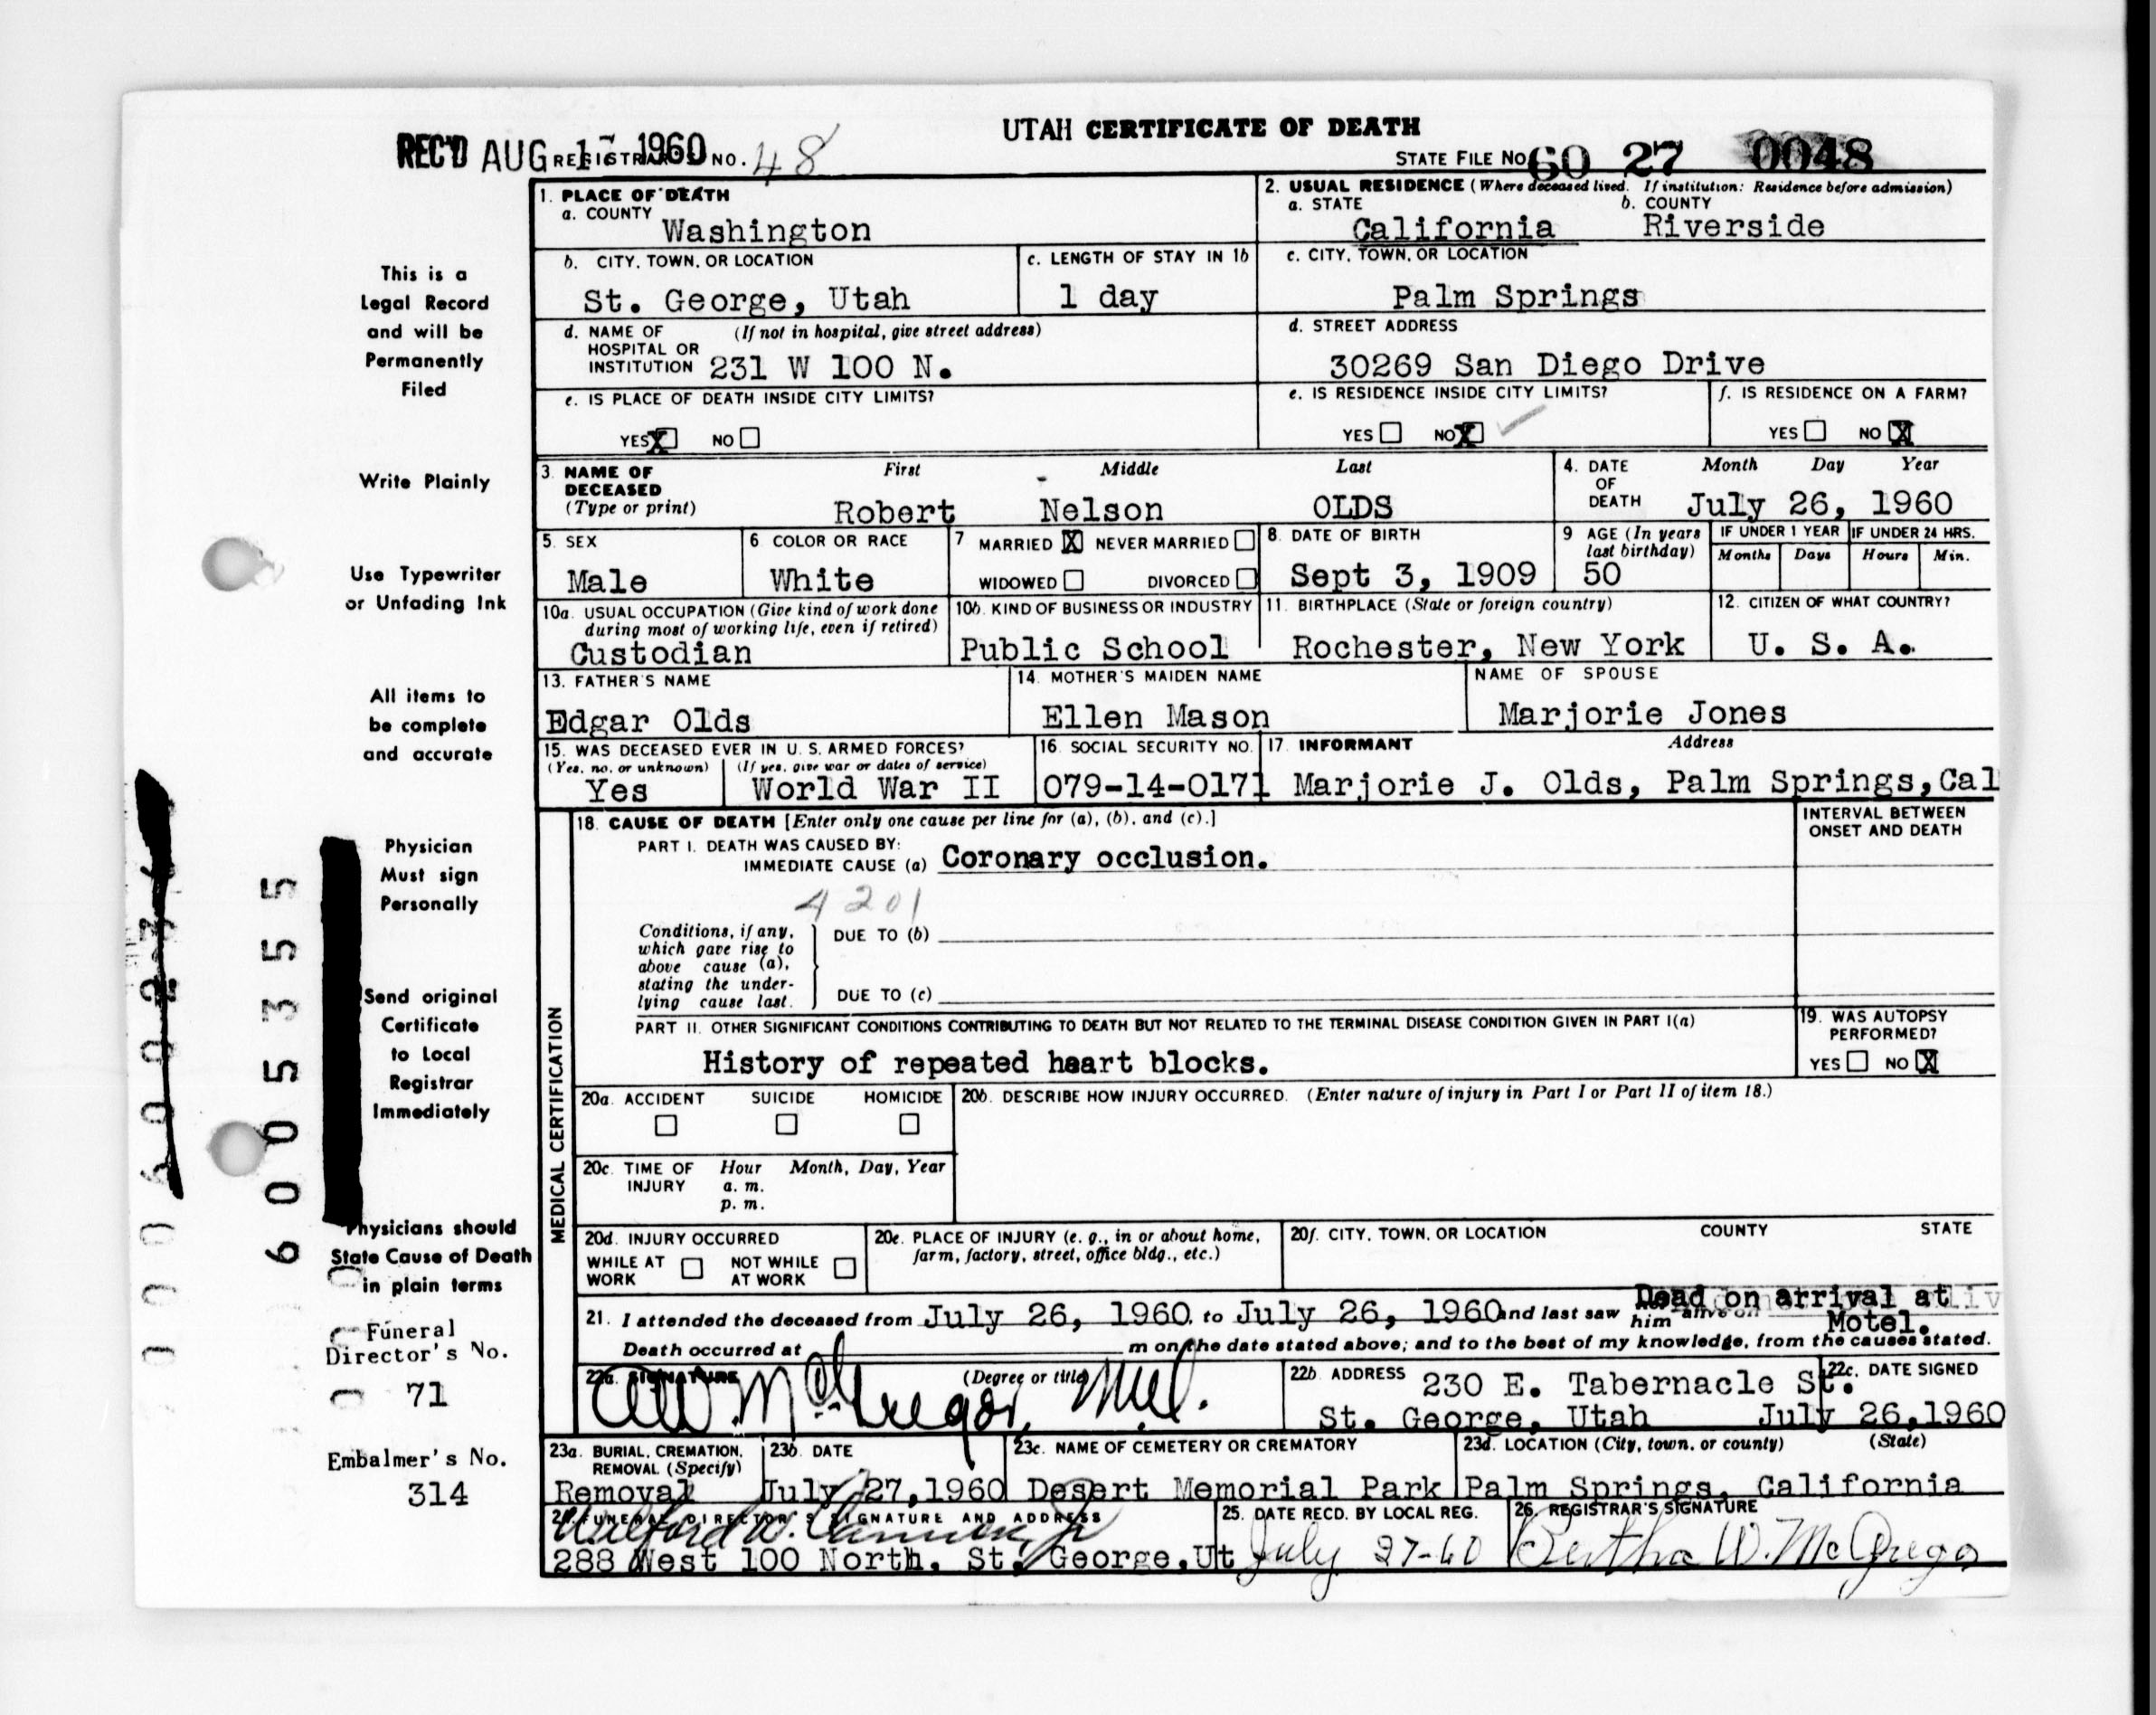 UTAH CERTIFICATE OF DEATH
REC'D AUG 17 1960 REGISTRAR'S NO. 48
STATE FILE NO. 60 27 0048
1. PLACE OF DEATH
a. COUNTY
Washington
2. USUAL RESIDENCE (Where deceased lived. If institution: Residence before admission)
a. STATE b. COUNTY
California Riverside
b. CITY, TOWN, OR LOCATION
St. George, Utah
c. LENGTH OF STAY IN 1b
1 day
c. CITY, TOWN, OR LOCATION
Palm Springs
d. NAME OF (If not in hospital, give street address)
HOSPITAL OR
INSTITUTION 231 W 100 N.
d. STREET ADDRESS
30269 San Diego Drive
e. IS PLACE OF DEATH INSIDE CITY LIMITS?
YES X NO
e. IS RESIDENCE INSIDE CITY LIMITS?
YES NO X
f. IS RESIDENCE ON A FARM?
YES NO X
3. NAME OF DECEASED
(Type or print)
First Middle Last
Robert Nelson OLDS
4. DATE OF DEATH
Month Day Year
July 26, 1960
5. SEX
Male
6 COLOR OR RACE
White
7 MARRIED X NEVER MARRIED
WIDOWED DIVORCED
8. DATE OF BIRTH
Sept 3, 1909
9 AGE (In years last birthday)
50
IF UNDER 1 YEAR IF UNDER 24 HRS.
Months Days Hours Min.
10a. USUAL OCCUPATION (Give kind of work done
during most of working life, even if retired)
Custodian
10b. KIND OF BUSINESS OR INDUSTRY
Public School
11. BIRTHPLACE (State or foreign country)
Rochester, New York
12. CITIZEN OF WHAT COUNTRY?
U. S. A.
13. FATHER'S NAME
Edgar Olds
14. MOTHER'S MAIDEN NAME
Ellen Mason
NAME OF SPOUSE
Marjorie Jones
15. WAS DECEASED EVER IN U. S. ARMED FORCES?
(Yes, no, or unknown) (If yes, give war or dates of service)
Yes World War II
16. SOCIAL SECURITY NO.
079-14-0171
17. INFORMANT Address
Marjorie J. Olds, Palm Springs, Cal
MEDICAL CERTIFICATION
18. CAUSE OF DEATH [Enter only one cause per line for (a), (b), and (c).]
INTERVAL BETWEEN
ONSET AND DEATH
PART I. DEATH WAS CAUSED BY:
IMMEDIATE CAUSE (a) Coronary occlusion.
4201
Conditions, if any,
which gave rise to
above cause (a),
stating the under-
lying cause last.
DUE TO (b)
DUE TO (c)
PART II. OTHER SIGNIFICANT CONDITIONS CONTRIBUTING TO DEATH BUT NOT RELATED TO THE TERMINAL DISEASE CONDITION GIVEN IN PART I(a)
History of repeated heart blocks.
19. WAS AUTOPSY
PERFORMED?
YES NO X
20a. ACCIDENT SUICIDE HOMICIDE
20b. DESCRIBE HOW INJURY OCCURRED. (Enter nature of injury in Part I or Part II of item 18.)
20c. TIME OF INJURY Hour Month, Day, Year
a. m.
p. m.
20d. INJURY OCCURRED
WHILE AT WORK NOT WHILE AT WORK
20e. PLACE OF INJURY (e. g., in or about home,
farm, factory, street, office bldg., etc.)
20f. CITY, TOWN, OR LOCATION COUNTY STATE
21. I attended the deceased from July 26, 1960, to July 26, 1960 and last saw him alive on Dead on arrival at
Motel.
Death occurred at m on the date stated above; and to the best of my knowledge, from the causes stated.
22a. SIGNATURE (Degree or title)
AW. McGregor, M.D.
22b ADDRESS 230 E. Tabernacle St.
St. George, Utah
22c. DATE SIGNED
July 26, 1960
23a. BURIAL, CREMATION,
REMOVAL (Specify)
Removal
23b. DATE
July 27, 1960
23c. NAME OF CEMETERY OR CREMATORY
Desert Memorial Park
23d. LOCATION (City, town, or county) (State)
Palm Springs, California
24. FUNERAL DIRECTOR'S SIGNATURE AND ADDRESS
288 West 100 North, St. George, Ut
25. DATE RECD. BY LOCAL REG.
July 27-60
26. REGISTRAR'S SIGNATURE
Bertha W. McGregor
This is a
Legal Record
and will be
Permanently
Filed
Write Plainly
Use Typewriter
or Unfading Ink
All items to
be complete
and accurate
Physician
Must sign
Personally
Send original
Certificate
to Local
Registrar
Immediately
Physicians should
State Cause of Death
in plain terms
Funeral
Director's No.
71
Embalmer's No.
314
6005355